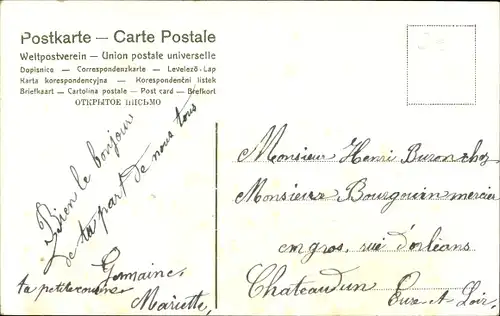 Postkarte — Carte Postale
Weltpostverein — Union postale universelle
Dopisnice — Correspondenzkarte — Levelező-Lap
Karta korespondencyjna — Korespondenční listek
Briefkaart — Cartolina postale — Post card — Brefkort
ОТКРЫТОЕ ПИСЬМО
Bien le bonjour
de ta part de nous tous
Germaine,
ta petite cousine
Mariette,
Monsieur Henri Buron chez
Monsieur Bourgouin mercier
en gros, rue d'orléans
Chateaudun Eure-et-Loir,